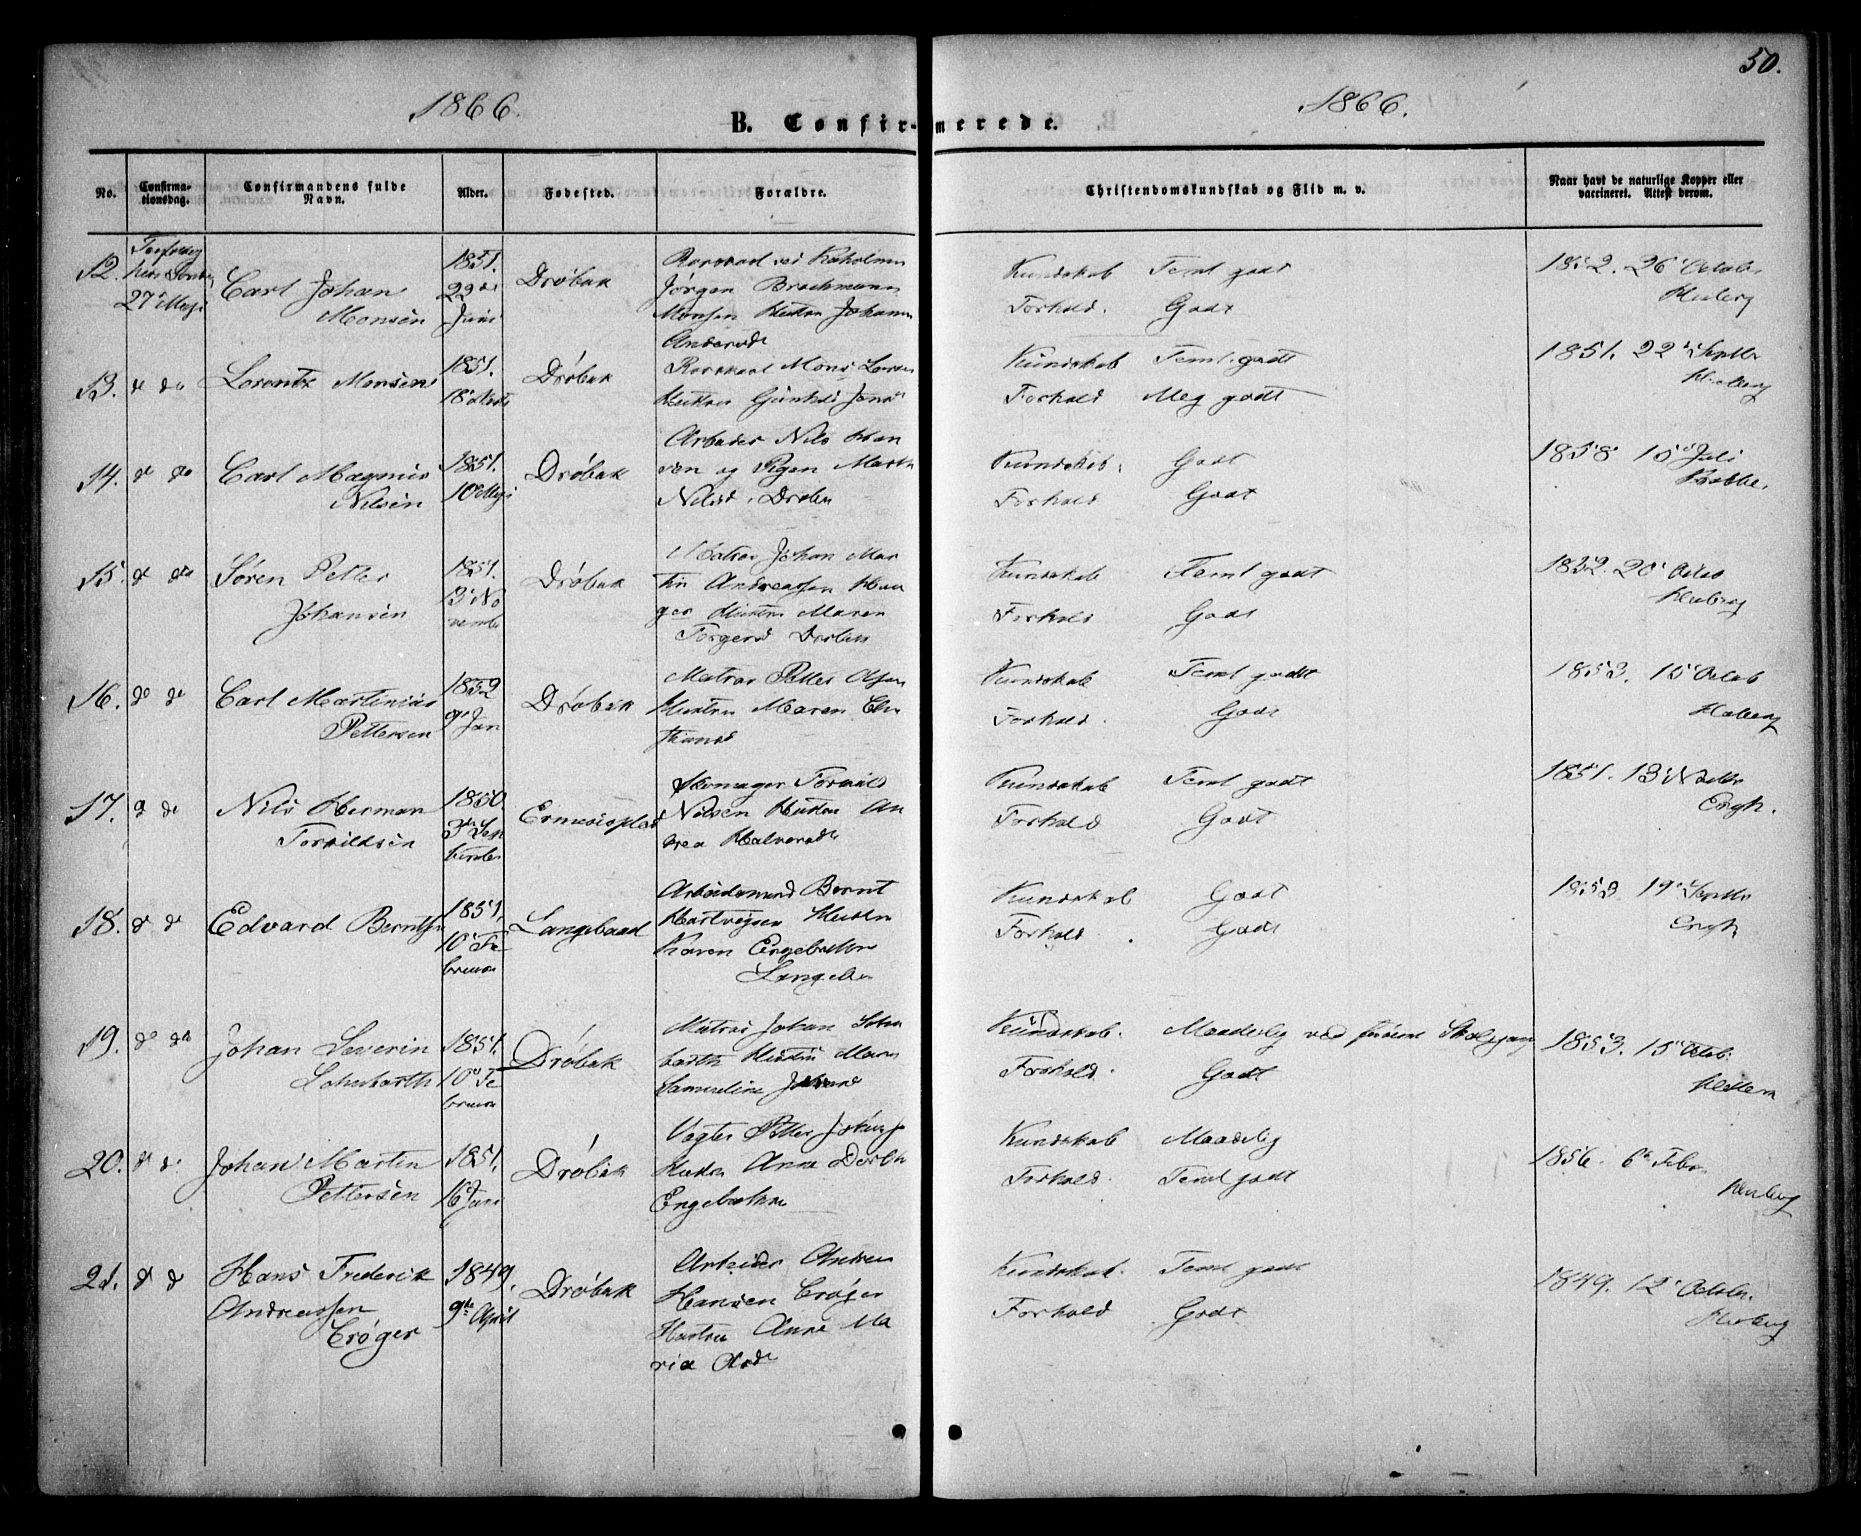 50.
1866.
1866.
B. Confir-merede.
No.
Confirma-
tionsdag.
Confirmandens fulde
Navn.
Alder.
Fødested.
Forældre.
Christendomskundskab og Flid m. v.
Naar havt de naturlige Kopper eller
vaccineret. Attest derom.
12.
27 Mai
Carl Johan
Monsen
1851.
22de
Juni
Drøbak
Jørgen Brochmann
Monsen Hustru Johanne
Andersd
Kundskab Teml godt
Forhold. Godt
1852. 26 Octob
Heiberg
13. d do
Lorentz Monsen
1851.
Drøbak
Mons
Hustru Gunhild
Kundskab Teml. godt
Forhold Meg godt
1851. 22 Septbr
Heiberg
14. d do
Carl Magnus
Nilsen
1851.
10 Mai
Drøbak
Arbeider Nils Han
sen og Pigen
Nilsd. Drøbak
Kundskab. Godt
Forhold Godt
1858 15 Juli
15. d do
Søren Petter
Johansen
1851.
13 No
vembr
Drøbak
Matros Johan Mar
tin Andreassen
Hustru Maren
Torgersd Drøbak
Kundskab Teml godt
Forhold Godt
1852. 20 Octob
Heiberg
16. do do
Carl Martinius
Pettersen
1852
9 Jan
Drøbak
Matros Petter Olsen
Hustru Maren
Kundskab Teml godt
Forhold. Godt
1853. 15 Octob
Heiberg
17. d do
Nils Herman
Torvildsen
1850.
3de Sep
tember
Skomager Torvild
Nilsen Hustru An
drea Halvorsdt
Kundskab Teml godt
Forhold Godt
1851. 13 Novbr
Engh.
18. d d
Edvard Berntsen
1851.
10 Fe
bruar
Langebaad
Arbeidsmand Bernt
Hartvigsen Hustru
Karen Engebretsd
Kundskab Godt
Forhold. Godt
1853. 19 Septbr
Engh
19. do do
Johan Severin
Schubarth
1851.
10 Fe
bruar
Drøbak
Matros Johan Schu
barth Hustru Maren
Samueline
Kundskab. Maadelig ved Skolegang
Forhold. Godt
1853. 15 Octob.
20. d d
Johan Martin
Pettersen
1851.
16 Juni
Drøbak
Vogter Petter
Hustru Anne Dorth
Kundskab Maadelig
Forhold. Teml godt
1856. 6te Febr
Heiberg
21. d d
Hans Frederik
Andreassen
Crøger
1849.
9de April
Drøbak
Arbeider Andreas
Hansen Crøger
Hustru Anne Ma
ria Olsd
Kundskab. Teml godt
Forhold Godt
1849. 12 Octobr.
Heiberg